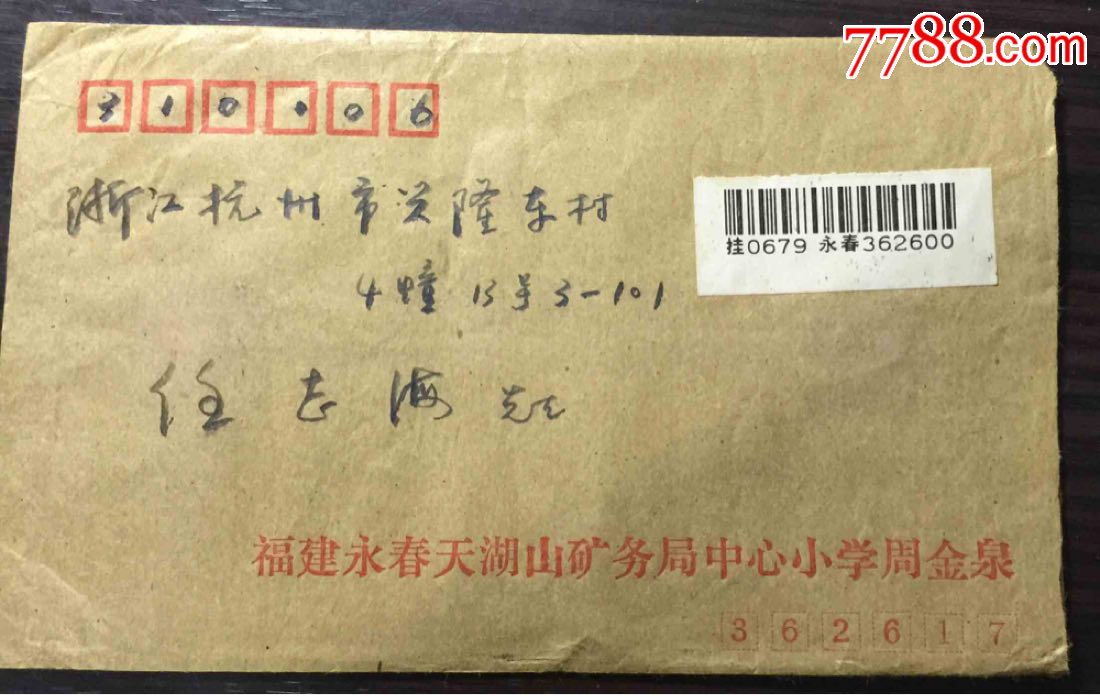 7788.com
310106
浙江杭州市兴隆东村
挂0679 永春362600
4幢13号3-101
任志海 先生
福建永春天湖山矿务局中心小学周金泉
362617